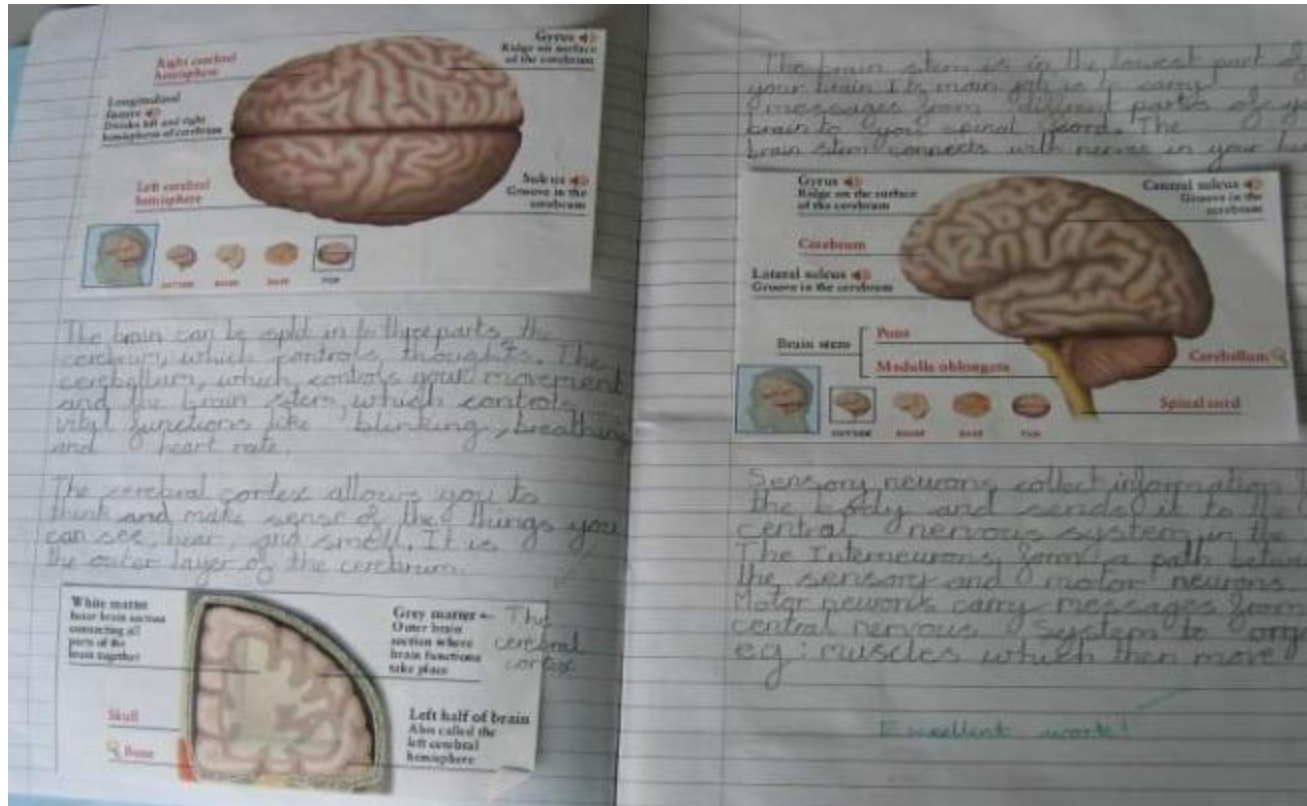 Right cerebral
hemisphere
Gyrus
Ridge on surface
of the cerebrum
Longitudinal
fissure
Divides left and right
hemispheres of cerebrum
Left cerebral
hemisphere
Sulcus
Groove in the
cerebrum
OUTSIDE
INSIDE
BASE
TOP
The brain can be split in to three parts, the
cerebrum, which controls thoughts. The
cerebellum, which controls your movement
and the brain stem, which controls
vital functions like blinking, breathing
and heart rate.
The cerebral cortex allows you to
think and make sense of the things you
can see, hear, and smell. It is
the outer layer of the cerebrum.
White matter
Inner brain section
connecting all
parts of the
brain together
Grey matter
Outer brain
section where
brain functions
take place
The
cerebral
cortex
Skull
Bone
Left half of brain
Also called the
left cerebral
hemisphere
The brain stem is in the lowest part of
your brain Its main job is to carry
messages from different parts of
brain to you spinal cord. The
brain stem connects with nerves in your
Gyrus
Ridge on the surface
of the cerebrum
Central sulcus
Groove in the
cerebrum
Cerebrum
Lateral sulcus
Groove in the cerebrum
Brain stem
Pons
Medulla oblongata
Cerebellum
Spinal cord
OUTSIDE
INSIDE
BASE
TOP
Sensory neurons collect information
the body and sends it to the
central nervous system in the
The Interneurons form a path
the sensory and motor neurons
Motor neurons carry messages from
central nervous system to
eg: muscles which then move
Excellent work!